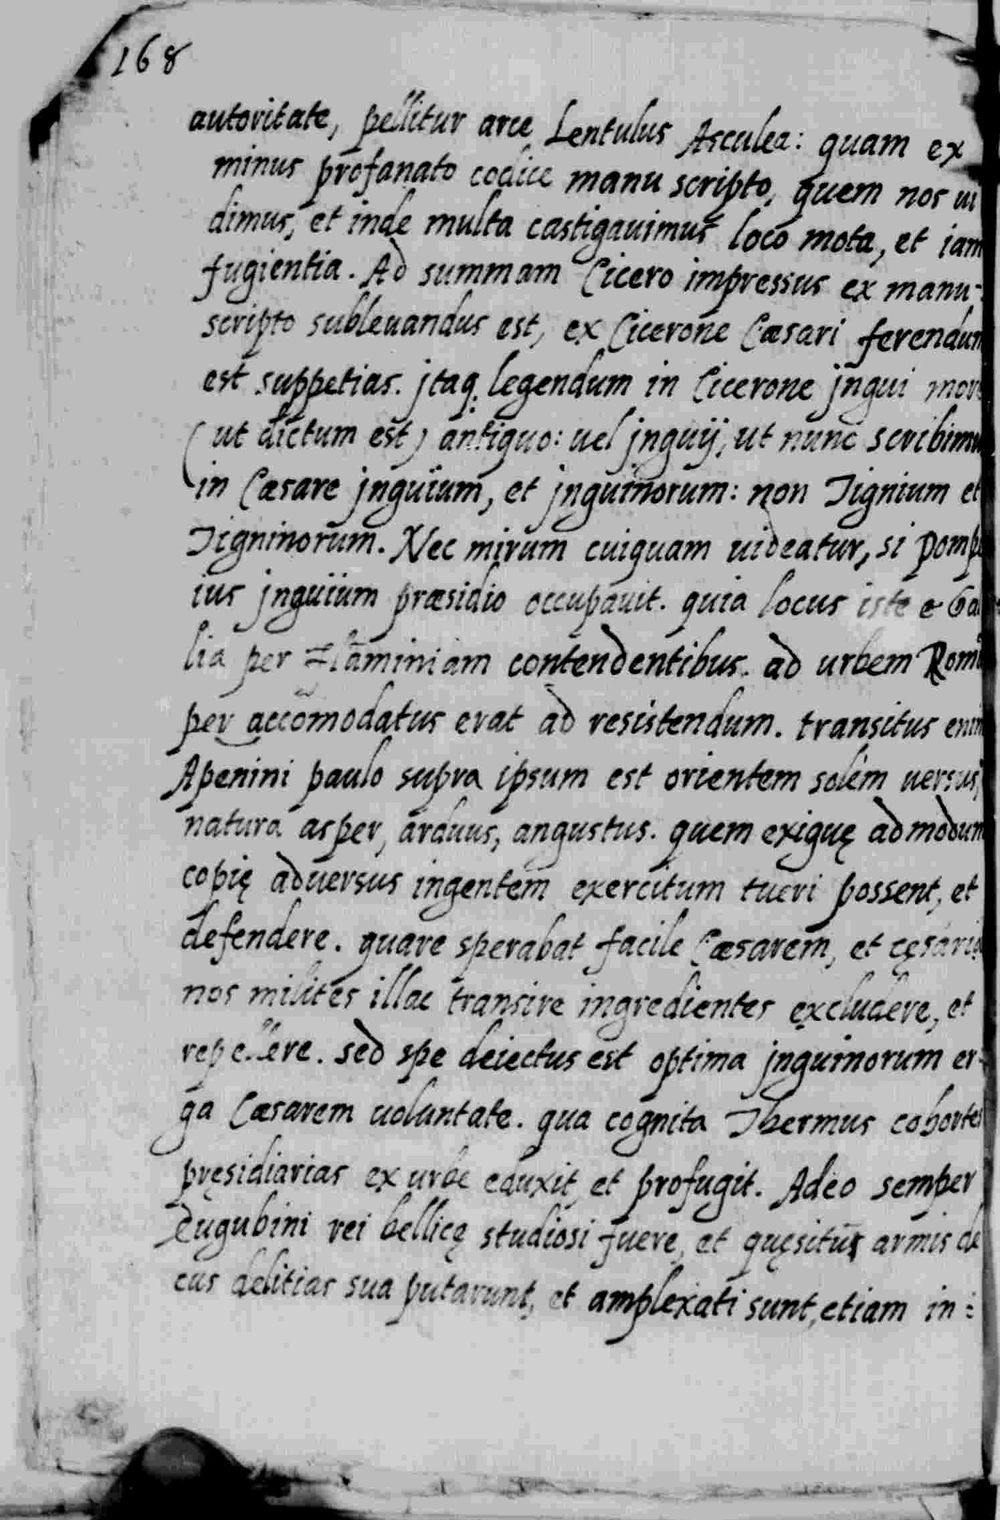 168
autoritate, pellitur arce Lentulus Asculea: quam ex
minus profanato codice manu scripto, quem nos ui
dimus, et inde multa castigauimus loco mota, et iam
fugientia. Ad summam Cicero impressus ex manu-
scripto subleuandus est, ex Cicerone Cæsari ferendum
est suppetias. jtaq. legendum in Cicerone jngui more
(ut dictum est) antiquo: uel jnguij, ut nunc scribimus
in Cæsare jnguium, et jnguinorum: non Tignium et
Tigninorum. Nec mirum cuiquam uideatur, si Pompe
ius jnguium præsidio occupauit. quia locus iste e Gal
lia per Flaminiam contendentibus ad urbem Rom
per accomodatus erat ad resistendum. transitus enim
Apenini paulo supra ipsum est orientem solem uersus,
natura asper, arduus, angustus. quem exiguę admodum
copię aduersus ingentem exercitum tueri possent, et
defendere. quare sperabat facile Cæsarem, et cęsaria
nos milites illac transire ingredientes excludere, et
repellere. sed spe deiectus est optima jnguinorum er-
ga Cæsarem uoluntate. qua cognita Thermus cohortes
pręsidiarias ex urbe eduxit, et profugit. Adeo semper
Eugubini rei bellicę studiosi fuere, et quęsitū armis de
cus delitias sua putarunt, et amplexati sunt, etiam in: